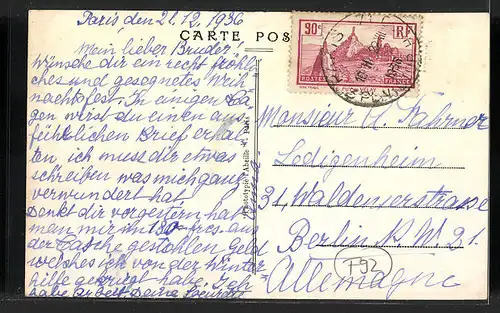 Paris den 21.12.1936
CARTE POS
90c RF
POSTES
Mein lieber Bruder!
Wünsche dir ein recht fröhli
ches und gesegnetes Weih
nachtsfest. In einigen Ta
gen wirst du einen aus
führlichen Brief erhal
ten, ich muss dir etwas
schreiben was mich ganz
verwundert hat.
Denkt dir vorgestern hat
man mir im 180 frcs aus
der Tasche gestohlen Geld
welches ich von der Winter
hilfe gekriegt habe. Ich
habe Arbeit Deine
Monsieur A. Fahrner
Ledigenheim
31, Waldenserstrasse
Berlin N.W. 21.
Allemagne
T92